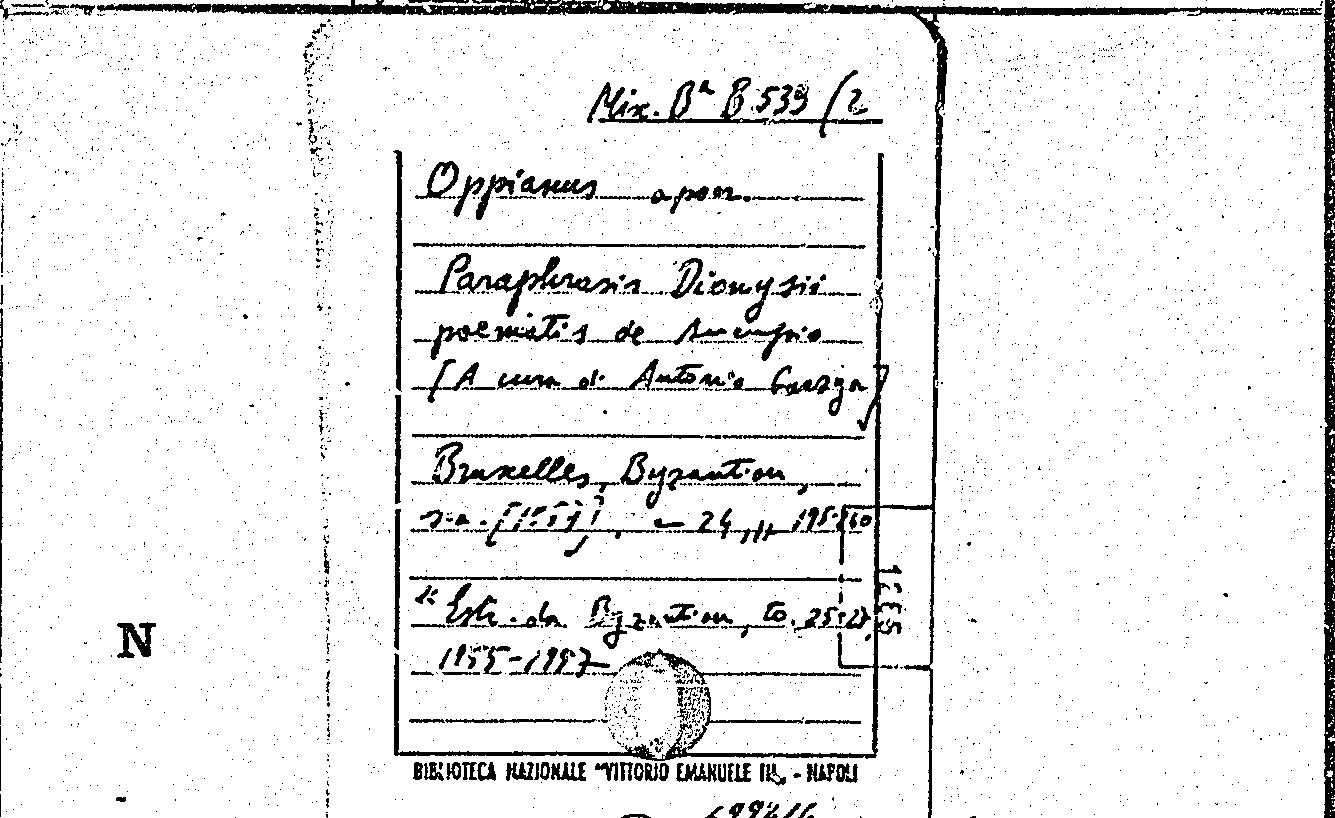 Misc. Bᵃ B 539 /2
Oppianus apam.
Paraphrasis Dionysii
poematis de Aucupio
[A cura di Antonio Garzya]
Bruxelles, Byzantion,
s.a. [1957], 24
Estr. da Byzantion, to. 25-27,
1955-1957
N
BIBLIOTECA NAZIONALE "VITTORIO EMANUELE III„ - NAPOLI